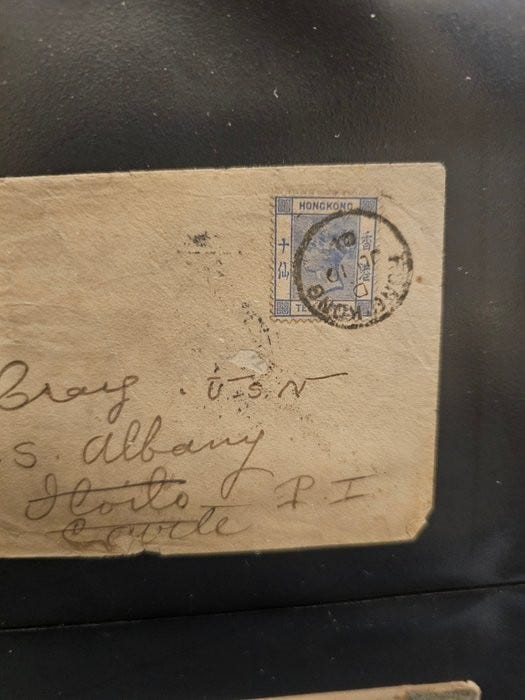 HONGKONG
十仙
香港
TE
HONG KONG
D
Bray . U.S.N
S. Albany
Iloilo P. I
Cavite